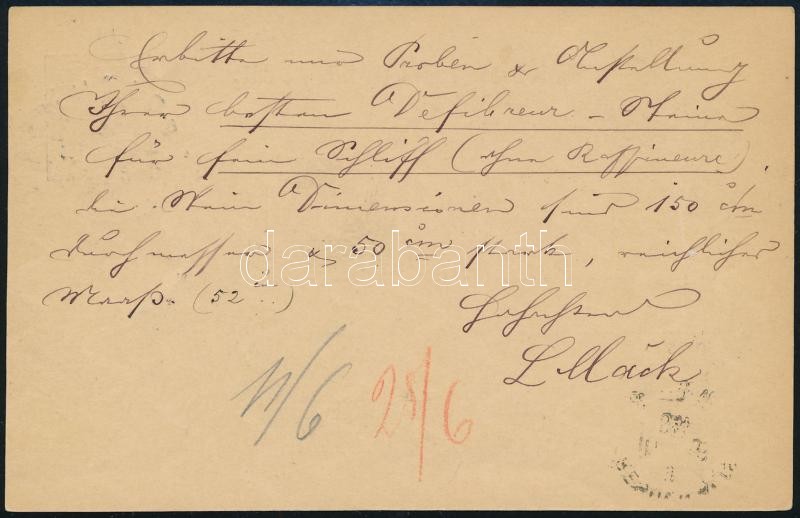 Erbitte mir Proben & Anstellung
Ihrer besten Defibreur-Steine
für fein Schliff (ohne Raffineure).
die Stein Dimensionen sind 150 c/m
durchmesser & 50 c/m stark, reichliches
Maaß. (52")
darabanth
Hochachtend
L Mäck
11/6 25/6